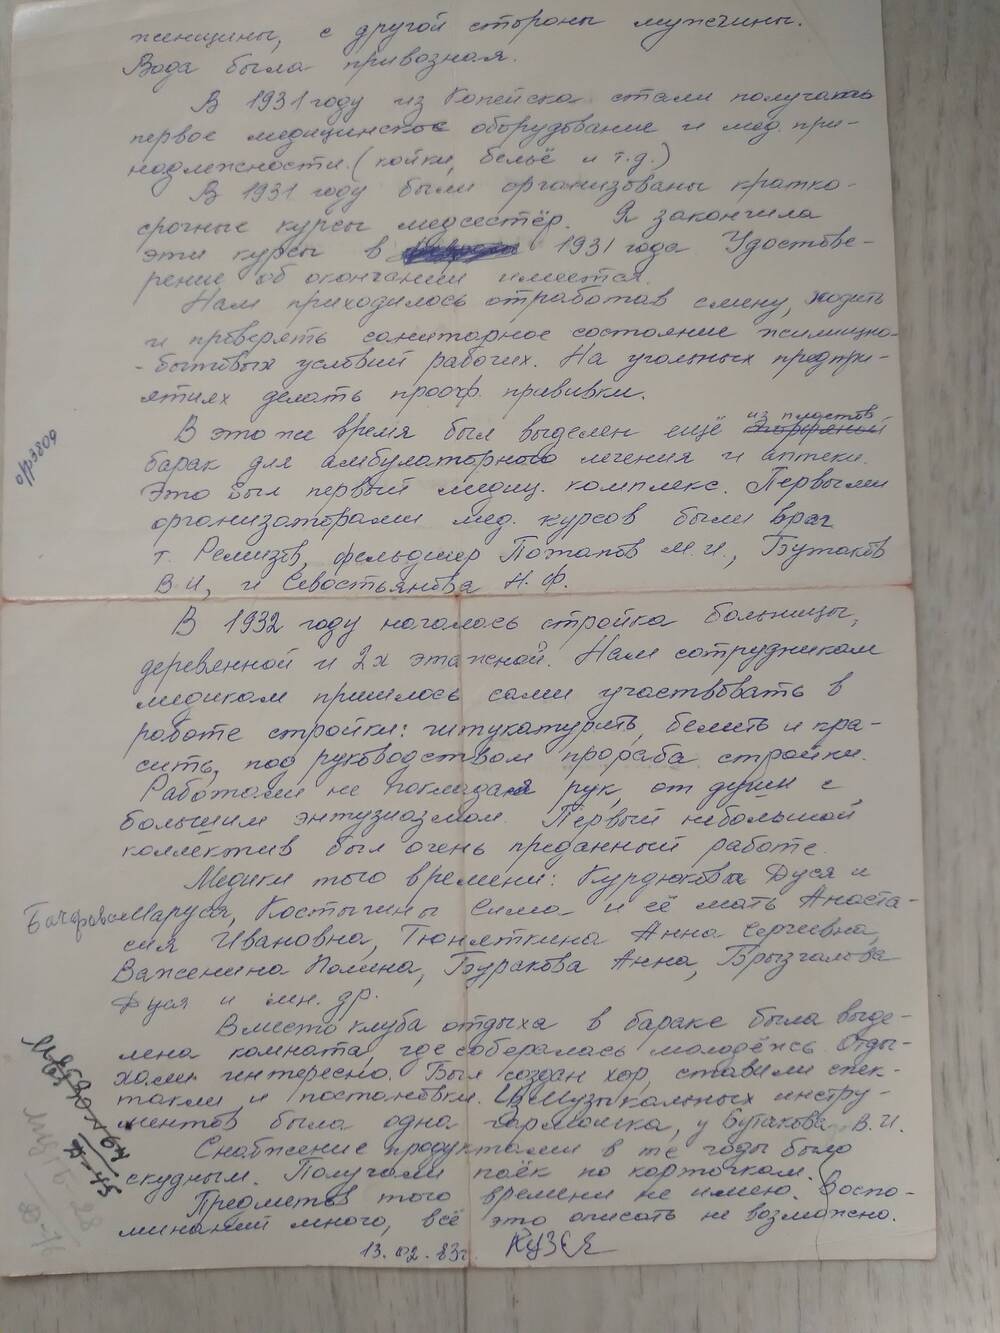 женщины, с другой стороны мужчины.
Вода была привозная.
В 1931 году из Копейска стали получать
первое медицинское оборудование и мед. при-
надлежности. (койки, бельё и т.д.)
В 1931 году были организованы кратко-
срочные курсы медсестёр. Я закончила
эти курсы в 1931 года Удостове-
рение об окончании имеется.
Нам приходилось отработав смену, ходить
и проверять санитарное состояние жилищно-
-бытовых условий рабочих. На угольных предпри-
ятиях делать проф. прививки.
из пластов
В это же время был выделен ещё
барак для амбулаторного лечения и аптеки.
Это был первый медиц. комплекс. Первыми
организаторами мед. курсов были врач
т. Ремизов, фельдшер Потапов М.И., Бутаков
В.И, и Севостьянова Н.Ф.
В 1932 году началась стройка больницы,
деревенной и 2х этажной. Нам сотрудникам
медикам пришлось сами участвовать в
работе стройки: штукатурить, белить и кра-
сить, под руководством прораба стройки.
Работали не покладая рук, от души с
большим энтузиазмом. Первый небольшой
коллектив был очень преданный работе.
Медики того времени: Курдюковы Дуся и
Маруся, Костыгины Сима и её мать Анаста-
сия Ивановна, Тюняткина Анна Сергеевна,
Важенина Полина, Буракова Анна, Брызгалова
Дуся и мн. др.
Вместо клуба отдыха в бараке была выде-
лена комната, где собералась молодёжь. Отды-
хали интересно. Был создан хор, ставили спек-
такли и постановки. Из музыкальных инстру-
ментов была одна гармошка, у Бутакова В.И.
Снабжение продуктами в те годы было
скудным. Получали паёк по карточкам.
Предметов того времени не имею. Воспо-
минаний много, всё это описать не возможно.
13.02.83г.
о/р3809